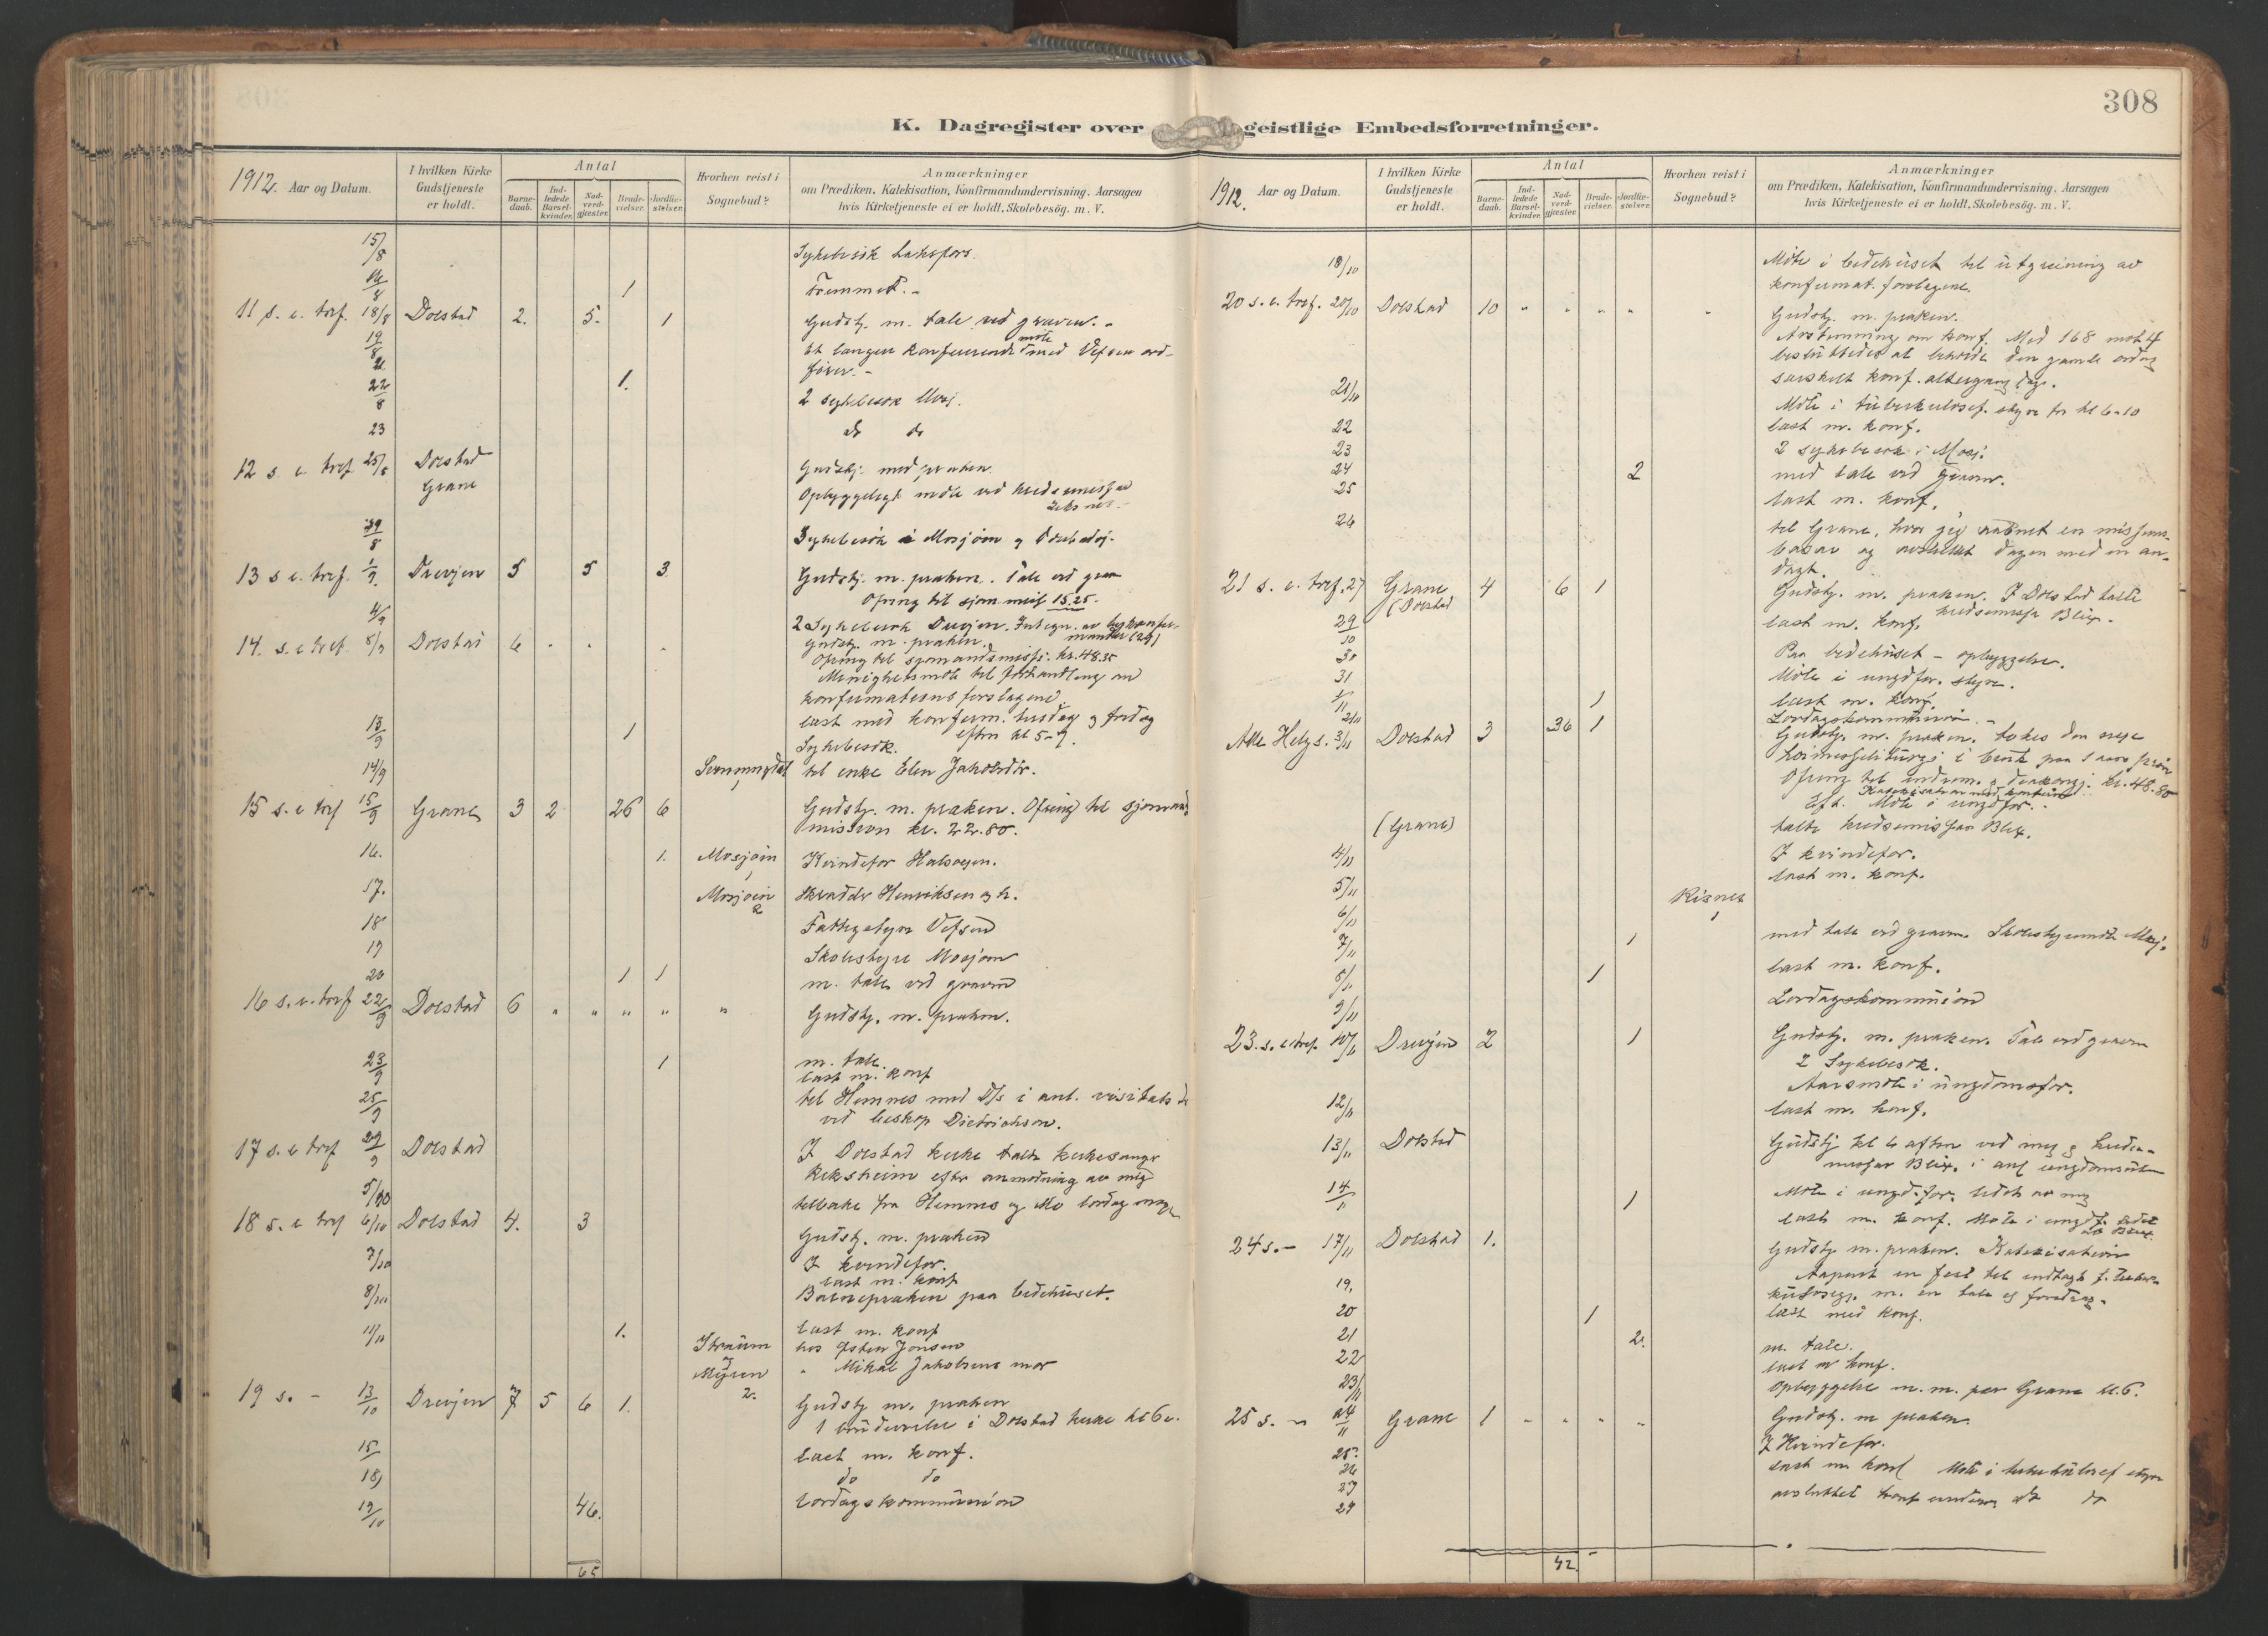 308
K. Dagregister over geistlige Embedsforretninger.
1912. Aar og Datum.
I hvilken Kirke Gudstjeneste er holdt.
Antal
Barnedaab.
Indledede Barselkvinder.
Nadverdgjæster.
Brudevielser.
Jordfæstelser.
Hvorhen reist i Sognebud?
Anmærkninger
om Prædiken, Katekisation, Konfirmandundervisning, Aarsagen
hvis Kirketjeneste ei er holdt, Skolebesög. m. V.
15/8 Sykebesök Laksfors.
16/8 1
11 s. e. tref. 18/8 Dolstad 2. 5. 1 Gudstj. m. tale ved graven. -
19/8 møte med Vefsen ord-
fører. -
22/8 1. 2 sykebesök Mosj.
23 do do
12 s. e. tref 25/8 Dolstad Gudstj. med præken.
Grane Opbyggeligt møte ved
29/8 Sykebesök i Mosjøen
13 s e. tref. 1/9. Drevjen 5 5 3 Gudstj. m. præken. Tale ved grav
Ofring til sjøm. miss 15.25.
4/9 2 Sykebesök Drevjen.
14. s. e tref. 8/9 Dolstad 6 Gudstj. m. præken.
Ofring til sjømandsmissj. kr. 48.35
Menighetsmøte til forhandling om
konfirmationsforslagene
læst med konfirm. tirsdag og fredag
efter kl 5-7.
13/9 1 Sykebesök.
14/9 til enke Elen Jakobsdtr.
15 s. e tref 15/9 Grane 3 2 26 6 Gudstj. m. præken. Ofring til sjømands
mission kr. 22.80.
16. 1. Mosjøen 1 Kvindefor Halsøyen.
17. Mosjøen 2 Skrædder Henriksen og h.
18 Fattigstyre Vefsen
19 Skolestyre Mosjøen
20 1 1 m. tale ved graven
16 s. e. tref 22/9 Dolstad 6 " " " " " Gudstj. m. præken.
23/9 1 m. tale.
læst m. konf
25/9 til Hemnes med D/s i anl. visitats
ved biskop Dietrichson.
17 s. e tref 29/9 Dolstad I Dolstad kirke talte kirkesanger
Reksheim efter anmodning av mig
5/10 tilbake fra Hemnes og Mo lørdag
18 s. e tref 6/10 Dolstad 4. 3 Gudstj. m. præken
7/10 I kvindefor.
læst m. konf
8/10 Barnepræken paa bedehuset.
11/10 1. læst m. konf
Straum 1 hos Østen Jonsen
Myren 2. " Mikal Jakobsens mor
19 s. - 13/10 Drevjen 7 5 6 1. Gudstj m. præken
1 brudevielse i Dolstad kirke kl 6 e.
15/ læst m. konf.
18) do do
19/10 46. Lørdagskommunion
65
1912. Aar og Datum.
I hvilken Kirke Gudstjeneste er holdt.
Antal
Barnedaab.
Indledede Barselkvinder.
Nadverdgjæster.
Brudevielser.
Jordfæstelser.
Hvorhen reist i Sognebud?
Anmærkninger
om Prædiken, Katekisation, Konfirmandundervisning, Aarsagen
hvis Kirketjeneste ei er holdt, Skolebesög. m. V.
18/10 Møte i bedehuset til utgreining av
konfirmat. forslagene.
20 s. e. tref. 20/10 Dolstad 10 " " " " " Gudstj. m. præken.
Avstemning om konf. Med 168 mot 4
besluttedes at beholde den gamle ordn
særskilt konf. altergang dag.
21/10 Møte i tuberkulosef. styre fr kl 6-10
22 læst m. konf.
23 2 sykebesök i Mosj.
24 2 med tale ved graven.
25 læst m. konf.
26 til Grane, hvor jeg aabnet en missjons-
basar og avsluttet dagen med en an-
dagt.
21 s. e. tref. 27 Grane 4 6 1 Gudstj. m. præken. I Dolstad talte
(Dolstad kredsmissjr Blix.
29/10 læst m. konf.
30 Paa bedehuset - opbyggelse.
31 Møte i ungdfor. styre.
1/11 1 læst m. konf.
2/11 Lørdagskommunion. -
Alle Helgs. 3/11 Dolstad 3 36 1 Gudstj. m. præken. tokes den nye
høimesseliturgi i bruk
Ofring til kr. 48.80
Eft. Møte i ungdfor.
(Grane) talte kredsmissjær Blix.
4/11 I kvindefor.
5/11 læst m. konf.
6/11 Risnes 1
7/11 1 med tale ved graven. Skolestyremøte Mosj.
8/11 1 læst m. konf.
9/11 Lørdagskommunion
23. s. e tref. 10/11 Drevjen 2 1 Gudstj. m. præken. Tale ved graven
2 Sykebesök.
Aarsmøte i ungdomsfor.
12/11 læst m. konf.
13/11 Dolstad Gudstj kl 6 aften ved mig og kreds-
missjær Blix. i anl
14/11 1 Møte i ungd. for. ledet av mig
læst m. konf. Møte i ungdf. ledet av Blix.
24 s. - 17/11 Dolstad 1. Gudstj m. præken. Katekisation
Aapnet en fest til indtægt f. tuber-
kulosesj. m. en tale og foredrag.
19. læst med konf.
20 1
21 2. m. tale.
22 læst m konf.
23/11 Opbyggelse m. m. paa Grane kl. 6.
25 s. - 24/11 Grane 1 " " " " Gudstj. m præken.
25. I Kvindefor.
26 læst m konf Møte i tuberkulosef styre
27
29
42